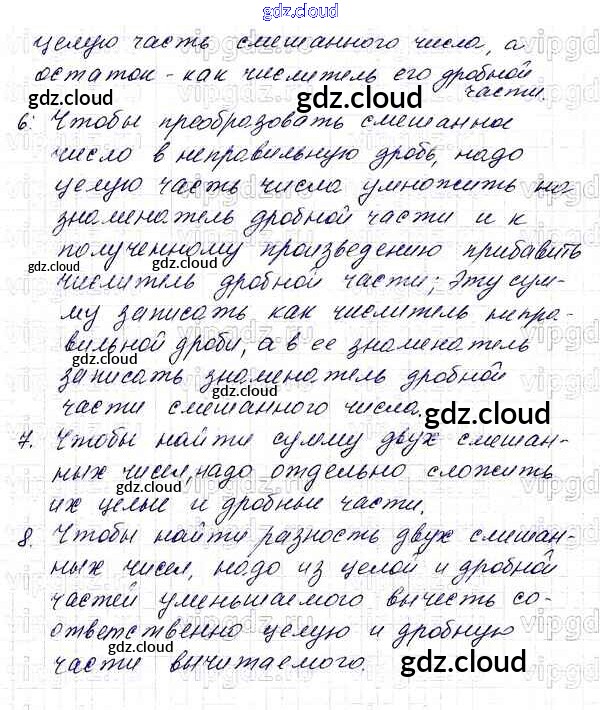 gdz.cloud
целую часть смешанного числа, а
остаток - как числитель его дробной
части.
6. Чтобы преобразовать смешанное
число в неправильную дробь, надо
целую часть числа умножить на
знаменатель дробной части и к
полученному произведению прибавить
числитель дробной части; Эту сум-
му записать как числитель непра-
вильной дроби, а в ее знаменатель
записать знаменатель дробной
части смешанного числа.
7. Чтобы найти сумму двух смешан-
ных чисел, надо отдельно сложить
их целые и дробные части.
8. Чтобы найти разность двух смешан-
ных чисел, надо из целой и дробной
частей уменьшаемого вычесть со-
ответственно целую и дробную
части вычитаемого.
gdz.cloud